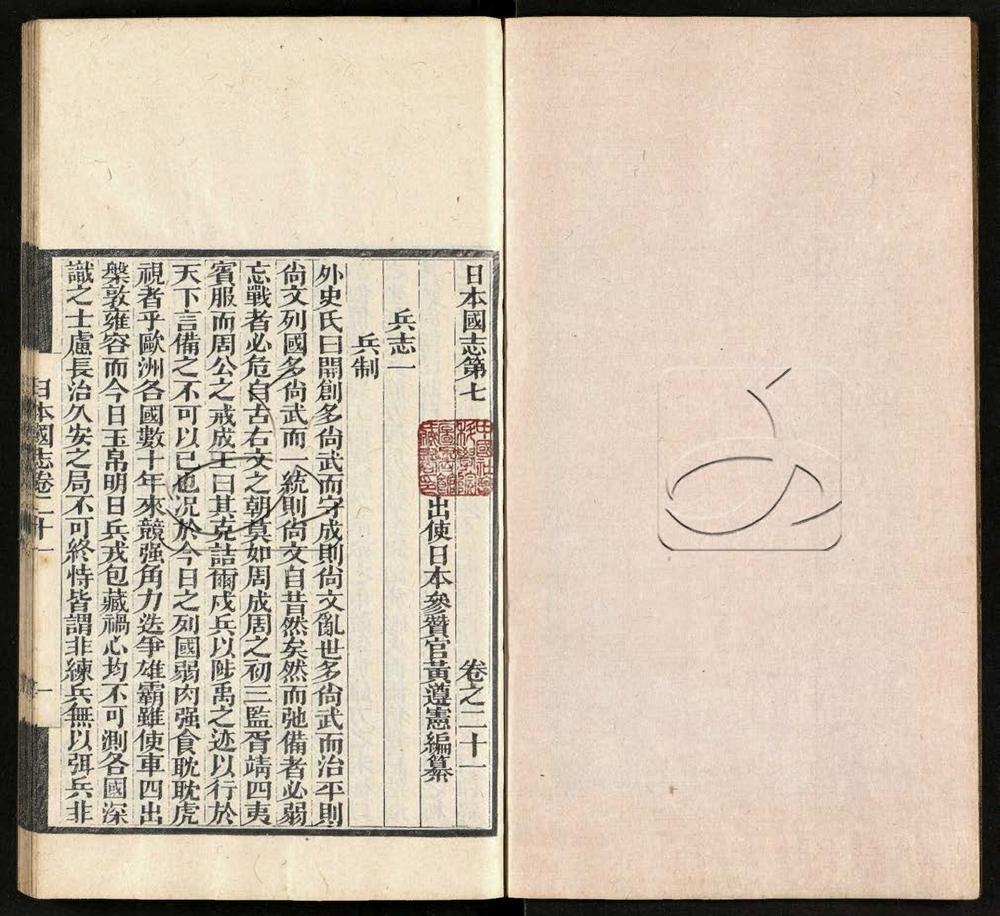 日本國志第七 卷之二十一
出使日本參贊官黃遵憲編纂
兵志一
兵制
外史氏曰開創多尙武而守成則尙文亂世多尙武而治平則
尙文列國多尙武而一統則尙文自昔然矣然而弛備者必弱
忘戰者必危自古右文之朝莫如周成周之初三監胥靖四夷
賓服而周公之戒成王曰其克詰爾戎兵以陟禹之迹以行於
天下言備之不可以已也况於今日之列國弱肉强食耽耽虎
視者乎歐洲各國數十年來競强角力迭爭雄霸雖使車四出
槃敦雍容而今日玉帛明日兵戎包藏禍心均不可測各國深
識之士慮長治久安之局不可終恃皆謂非練兵無以弭兵非
日本國志卷二十一
一